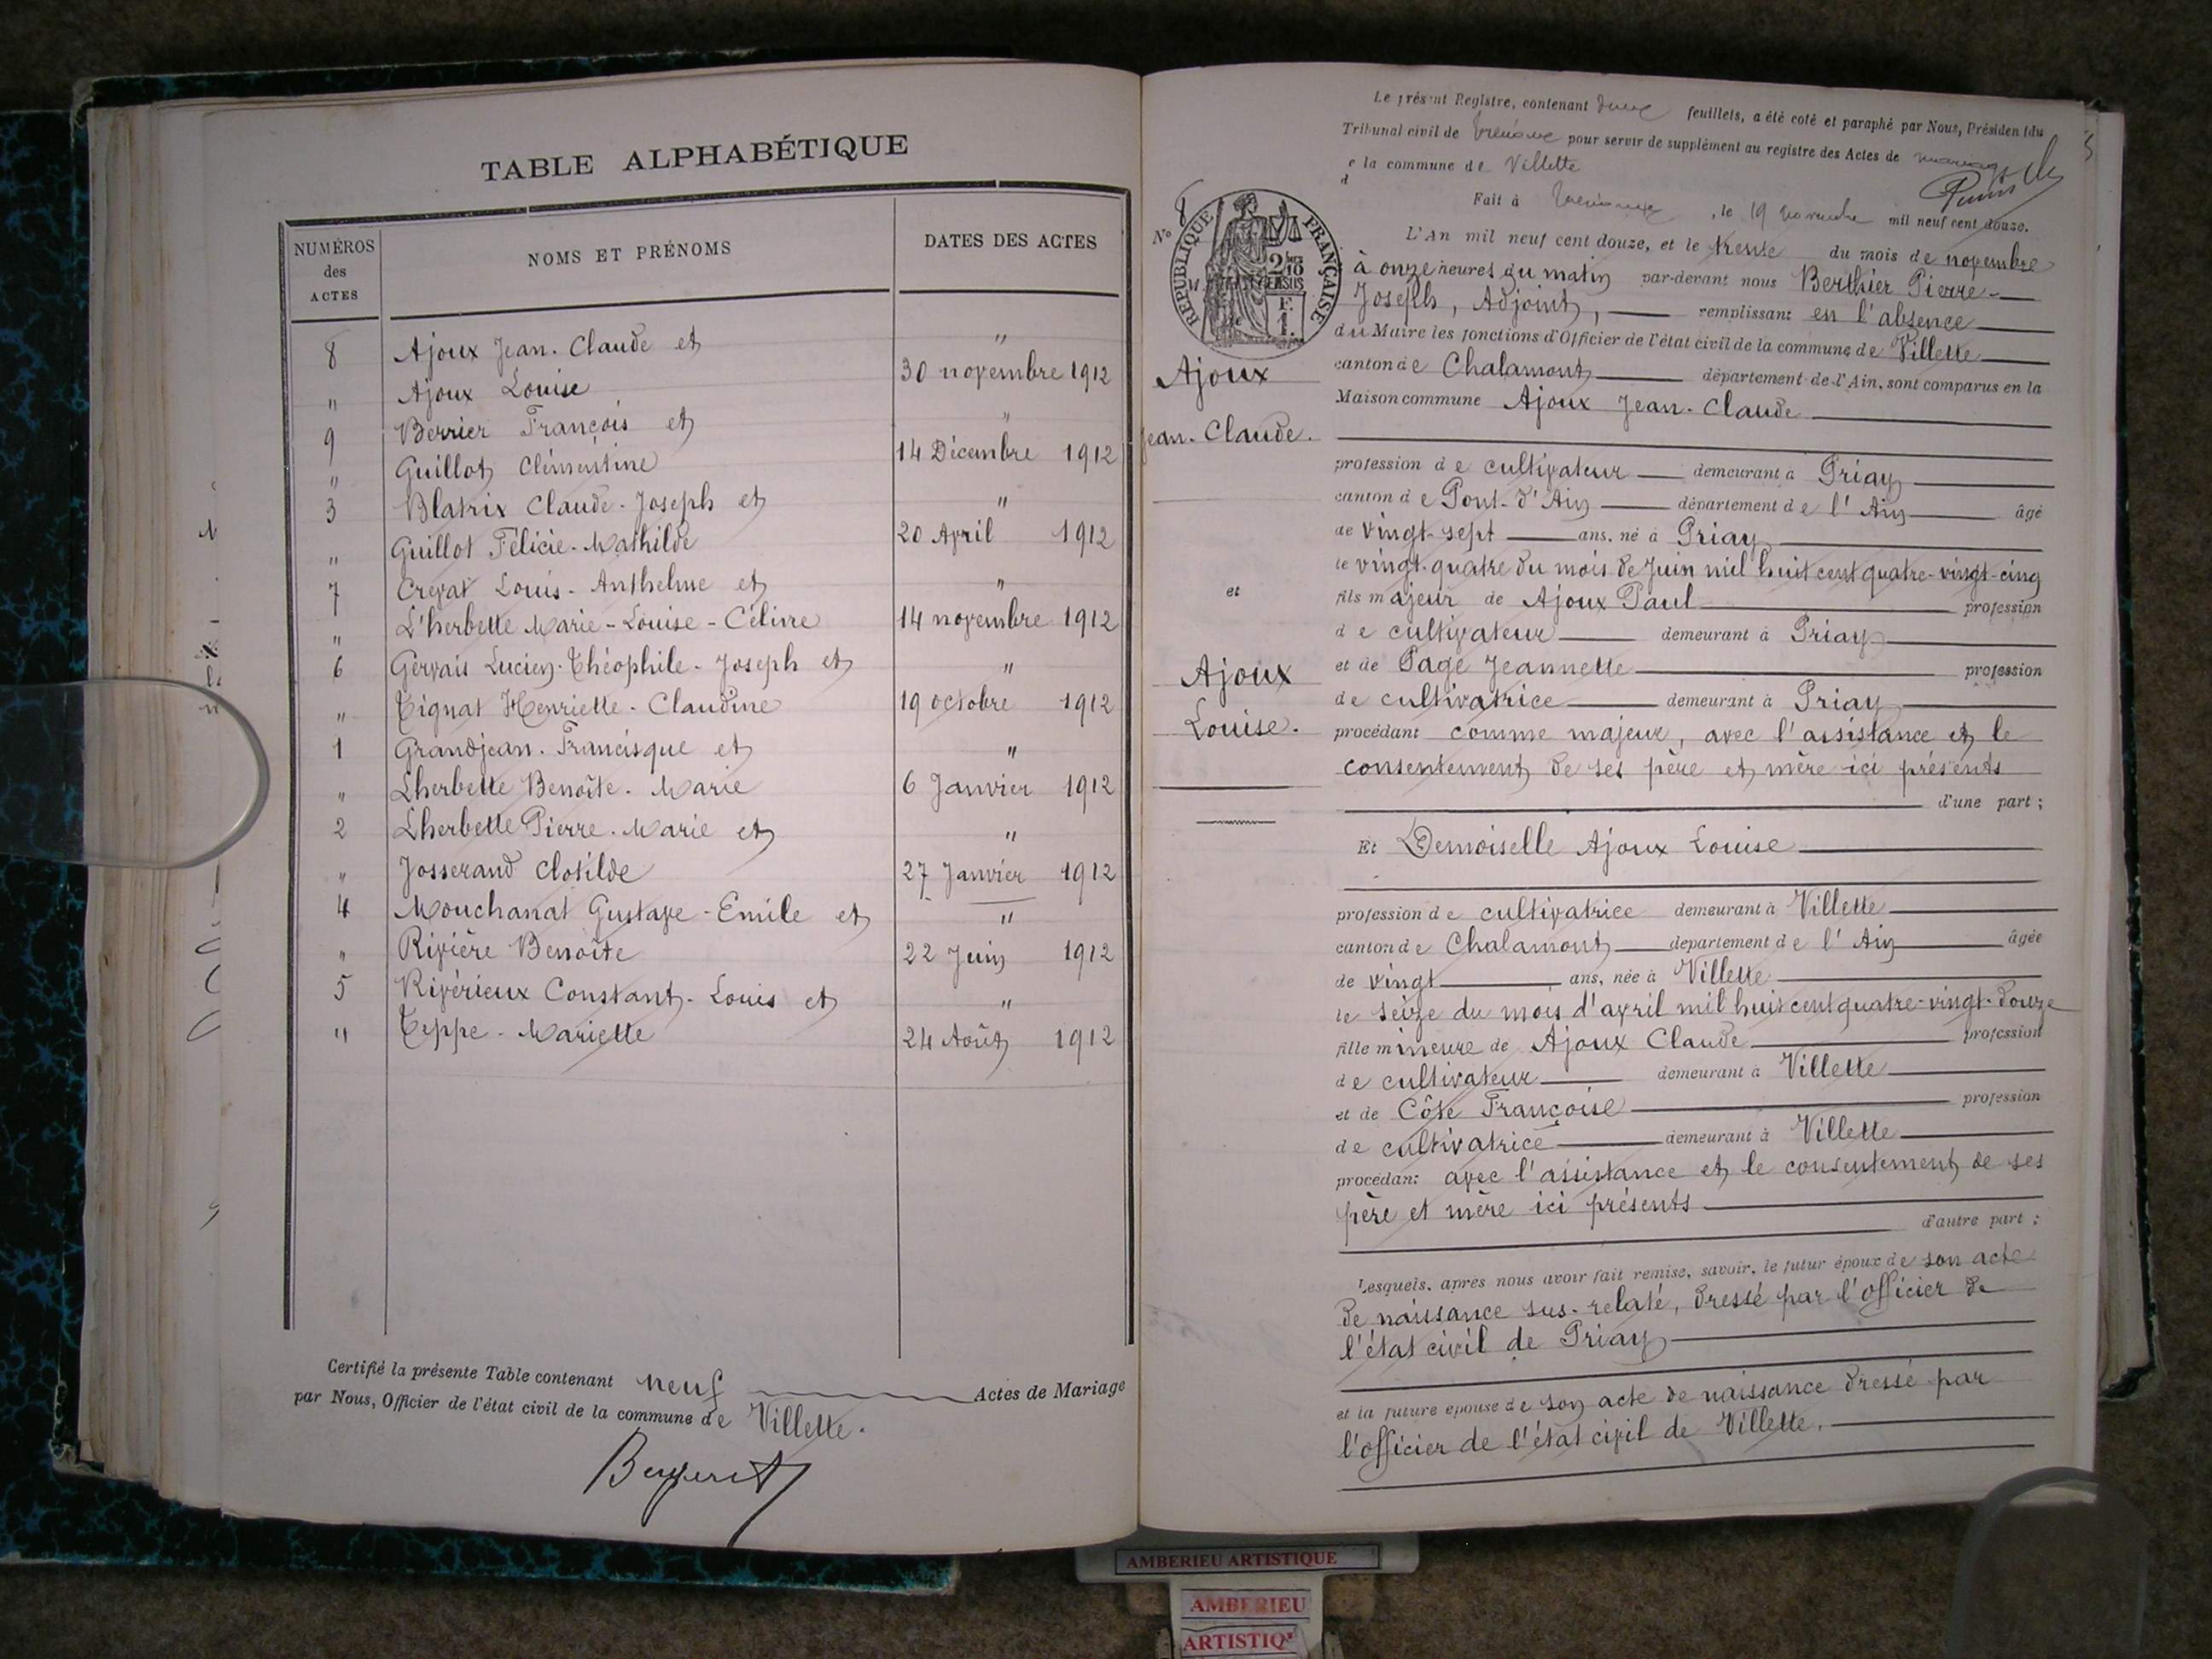 TABLE ALPHABÉTIQUE
NUMÉROS des ACTES
NOMS ET PRÉNOMS
DATES DES ACTES
8 Ajoux Jean-Claude et "
" Ajoux Louise 30 novembre 1912
9 Berrier François et "
" Guillot Clémentine 14 Décembre 1912
3 Blatrix Claude-Joseph et "
" Guillot Félicie-Mathilde 20 Avril 1912
7 Crevat Louis-Anthelme et "
" L'herbette Marie-Louise-Célinie 14 novembre 1912
6 Gervais Lucien-Théophile-Joseph et "
" Tignat Henriette-Claudine 19 octobre 1912
1 Grandjean-Francisque et "
" Lherbette Benoîte-Marie 6 Janvier 1912
2 Lherbette Pierre-Marie et "
" Josserand Clotilde 27 Janvier 1912
4 Mouchanat Gustave-Emile et "
" Rivière Benoîte 22 Juin 1912
5 Rivérieux Constant-Louis et "
" Teppe-Mariette 24 Août 1912
Certifié la présente Table contenant neuf Actes de Mariage
par Nous, Officier de l'état civil de la commune de Villette.
Le présent Registre, contenant feuillets, a été coté et paraphé par Nous, Président du
Tribunal civil de Trévoux pour servir de supplément au registre des Actes de mariage
de la commune de Villette
Fait à Trévoux, le 19 novembre mil neuf cent douze.
No 8
RÉPUBLIQUE FRANÇAISE
2/10 EN SUS
L'An mil neuf cent douze, et le trente du mois de novembre
à onze heures du matin par-devant nous Berthier Pierre-
Joseph, Adjoint, remplissant en l'absence
du Maire les fonctions d'Officier de l'état civil de la commune de Villette
canton de Chalamont département de l'Ain, sont comparus en la
Maison commune Ajoux Jean-Claude
Ajoux
Jean-Claude.
et
Ajoux
Louise.
profession de cultivateur demeurant à Priay
canton de Pont-d'Ain département de l'Ain âgé
de vingt-sept ans, né à Priay
le vingt-quatre du mois de Juin mil huit cent quatre-vingt-cinq
fils majeur de Ajoux Paul profession
de cultivateur demeurant à Priay
et de Page Jeannette profession
de cultivatrice demeurant à Priay
procédant comme majeur, avec l'assistance et le
consentement de ses père et mère ici présents
d'une part ;
Et Demoiselle Ajoux Louise
profession de cultivatrice demeurant à Villette
canton de Chalamont département de l'Ain âgée
de vingt ans, née à Villette
le seize du mois d'avril mil huit cent quatre-vingt-douze
fille mineure de Ajoux Claude profession
de cultivateur demeurant à Villette
et de Côte Françoise profession
de cultivatrice demeurant à Villette
procédant avec l'assistance et le consentement de ses
père et mère ici présents
d'autre part ;
Lesquels, après nous avoir fait remise, savoir, le futur époux de son acte
de naissance sus-relaté, dressé par l'officier de
l'état civil de Priay
et la future épouse de son acte de naissance dressé par
l'officier de l'état civil de Villette.
AMBERIEU ARTISTIQUE
AMBERIEU
ARTISTIQ